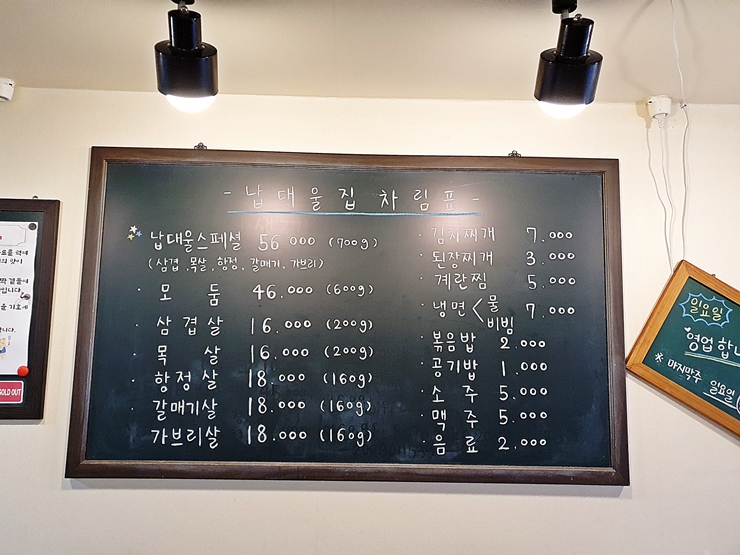 - 납대울집 차림표 -
납대울스페셜 56 000 (700g)
(삼겹, 목살, 항정, 갈매기, 가브리)
· 모 둠 46.000 (600g)
· 삼겹살 16.000 (200g)
· 목 살 16.000 (200g)
· 항정살 18.000 (160g)
· 갈매기살 18.000 (160g)
가브리살 18.000 (160g)
· 김치찌개 7.000
· 된장찌개 3.000
· 계란찜 5.000
· 냉면 < 물 비빔 7.000
· 볶음밥 2.000
· 공기밥 1.000
· 소 주 5.000
· 맥 주 5.000
· 음 료 2.000
일요일
영업합니
* 마지막주 일요일
SOLD OUT